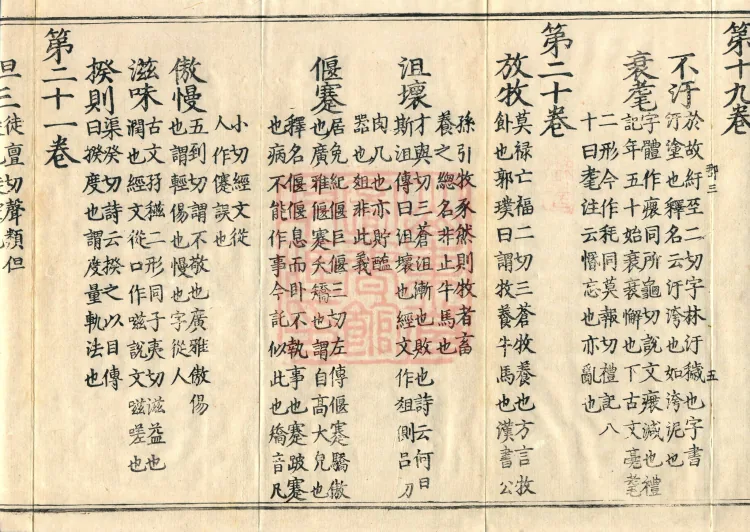 第十九卷
不汙於故紆至二切字林汙穢也字書
汙塗也釋名云汙洿也如洿泥也
衰耄字體作㾊同所龜切說文㾊減也禮
記年五十始衰衰懈也下古文耄𦒷
二形今作耗同莫報切禮記八
十曰耄注云惛忘也亦亂也
第二十卷
放牧莫禄亡福二切三蒼牧養也方言牧
飤也郭璞曰謂牧養牛馬也漢書公
孫引牧豕然則牧者畜
養之緫名非止牛馬也
沮壞才與切三蒼沮漸也敗也詩云何日
斯沮傳曰沮壞也經文作俎側呂刀
肉几也亦貯醢
器也俎非此義
偃蹇居免紀偃巨偃三切左傳偃蹇驕傲
也廣雅偃蹇夭撟也謂自高大皃也
釋名偃偃息而卧不執事也蹇跛蹇
也病不能作事今託似此也撟音几
小切經文從
人作僊誤也
傲慢五到切謂不敬也廣雅傲傷
也謂輕傷也慢也字從人
滋味古文孖稵二形同子夷切滋益也
潤也經文從口作嗞說文嗞嗟也
揆則渠癸切詩云揆之以日傳
曰揆度也謂度量軌法也
第二十一卷
旦三徒亶切聲類但
郢三
五